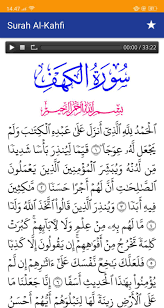 14.47
Surah Al-Kahfi
00:00 / 33:22
سورة الكهف
بِسْمِ اللَّهِ الرَّحْمَنِ الرَّحِيمِ
اَلْحَمْدُ لِلّٰهِ الَّذِيْٓ اَنْزَلَ عَلٰى عَبْدِهِ الْكِتٰبَ وَلَمْ
يَجْعَلْ لَّهٗ عِوَجًا ۜ﴿١﴾ قَيِّمًا لِّيُنْذِرَ بَأْسًا شَدِيْدًا
مِّنْ لَّدُنْهُ وَيُبَشِّرَ الْمُؤْمِنِيْنَ الَّذِيْنَ يَعْمَلُوْنَ
الصّٰلِحٰتِ اَنَّ لَهُمْ اَجْرًا حَسَنًا ﴿٢﴾ مَّاكِثِيْنَ
فِيْهِ اَبَدًا ﴿٣﴾ وَّيُنْذِرَ الَّذِيْنَ قَالُوا اتَّخَذَ اللّٰهُ وَلَدًا
﴿٤﴾ مَا لَهُمْ بِهٖ مِنْ عِلْمٍ وَّلَا لِاٰبَاۤىِٕهِمْۗ كَبُرَتْ
كَلِمَةً تَخْرُجُ مِنْ اَفْوَاهِهِمْۗ اِنْ يَّقُوْلُوْنَ اِلَّا كَذِبًا
﴿٥﴾ فَلَعَلَّكَ بَاخِعٌ نَّفْسَكَ عَلٰٓى اٰثَارِهِمْ اِنْ لَّمْ
يُؤْمِنُوْا بِهٰذَا الْحَدِيْثِ اَسَفًا ﴿٦﴾ اِنَّا جَعَلْنَا مَا
عَلَى الْاَرْضِ زِيْنَةً لَّهَا لِنَبْلُوَهُمْ اَيُّهُمْ اَحْسَنُ